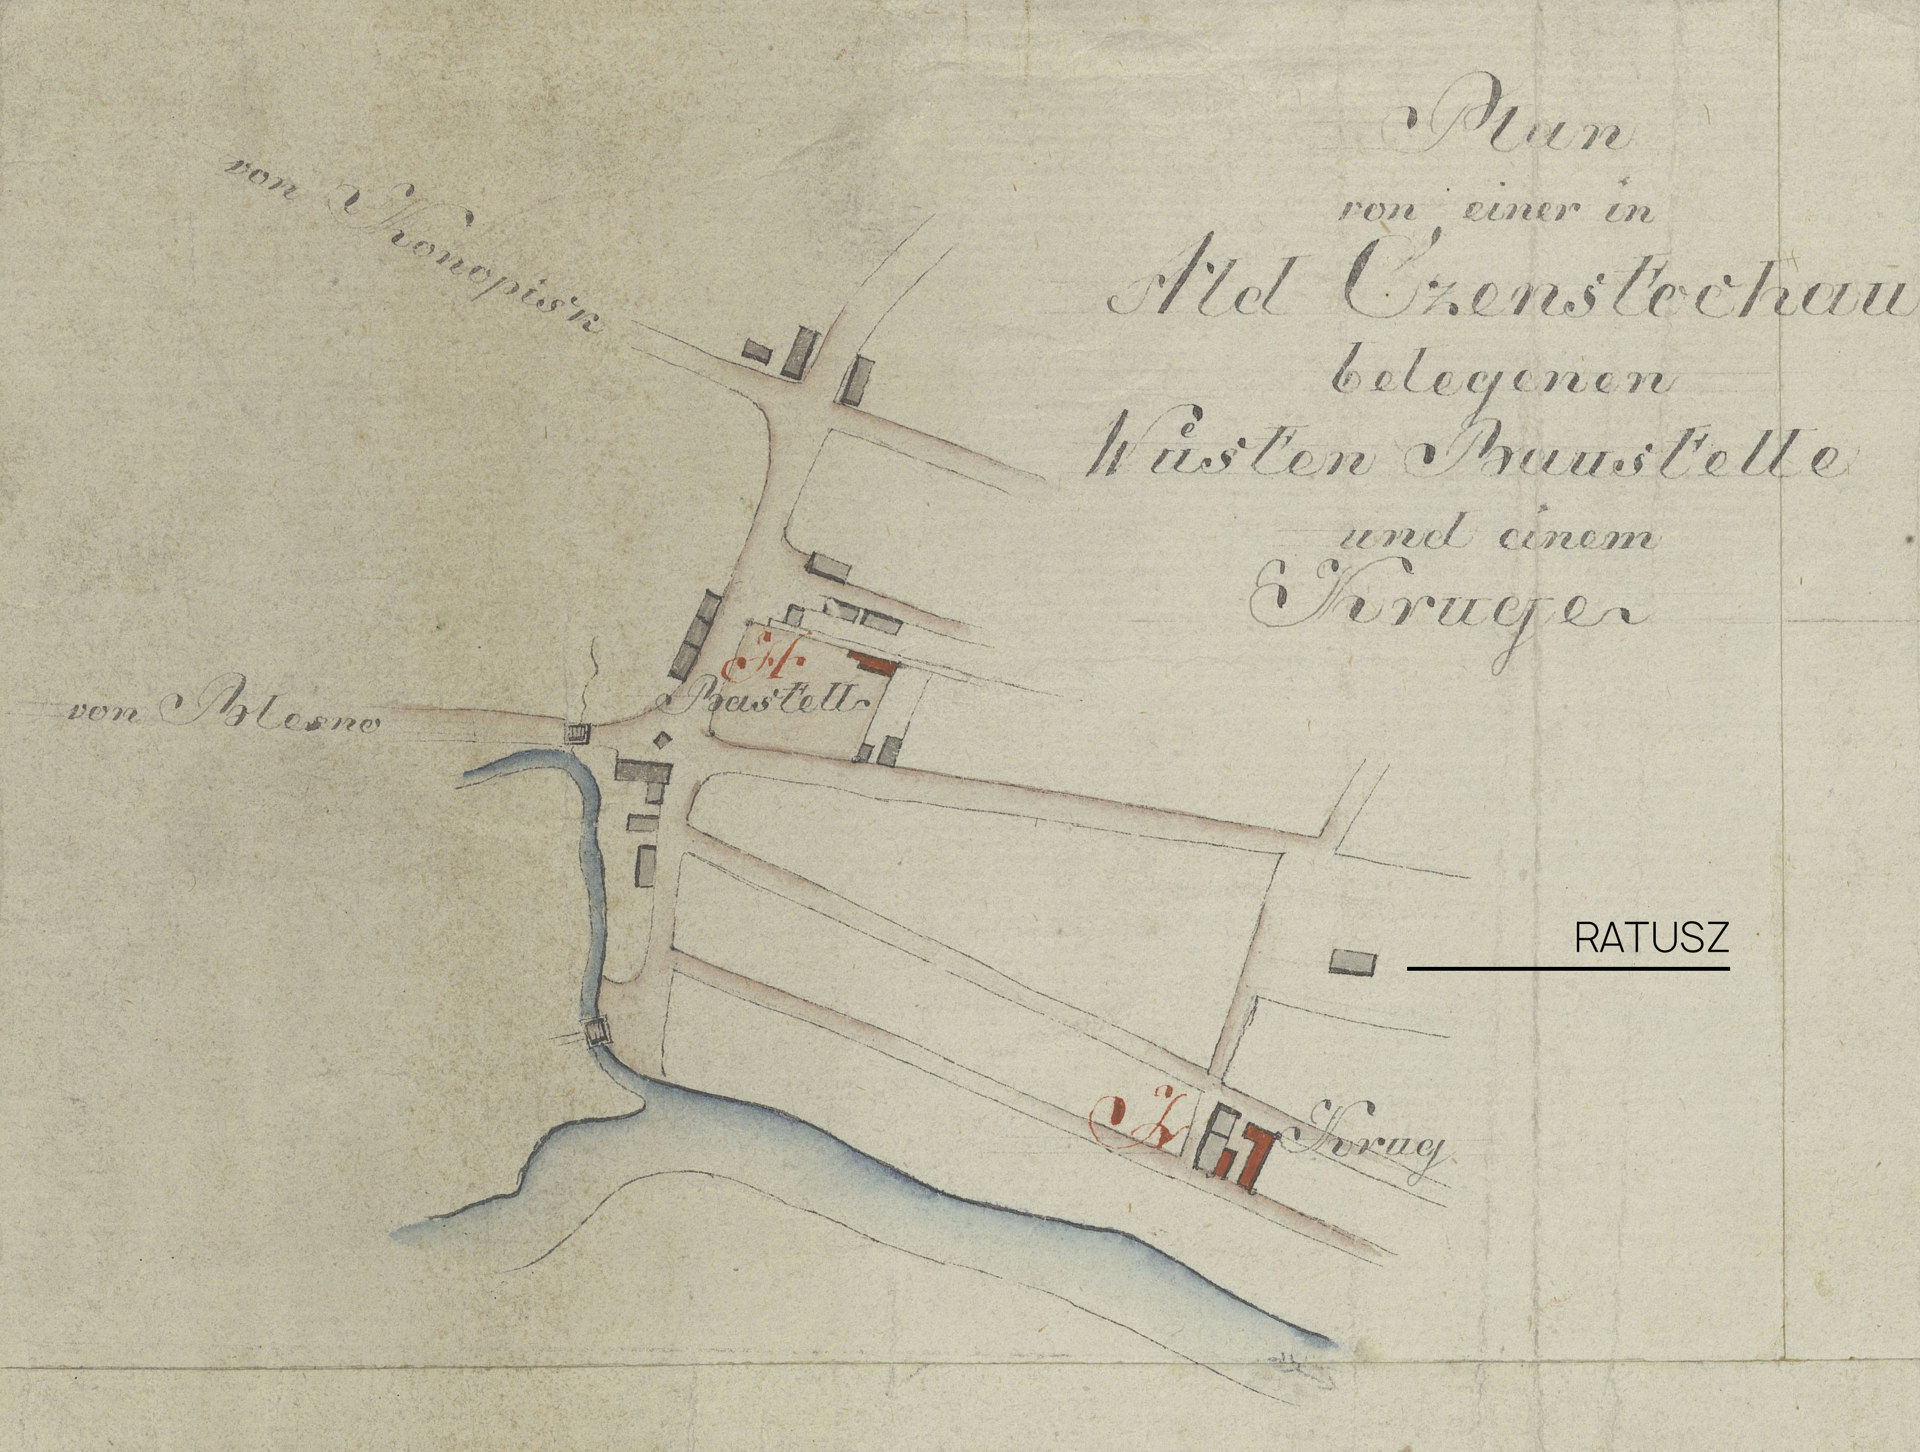 Plan
von einer in
Ald Czenstochau
belegenen
Wüsten Baustelle
und einem
Kruge
von Konopisk
H
Bastell
von Blesno
RATUSZ
Krug